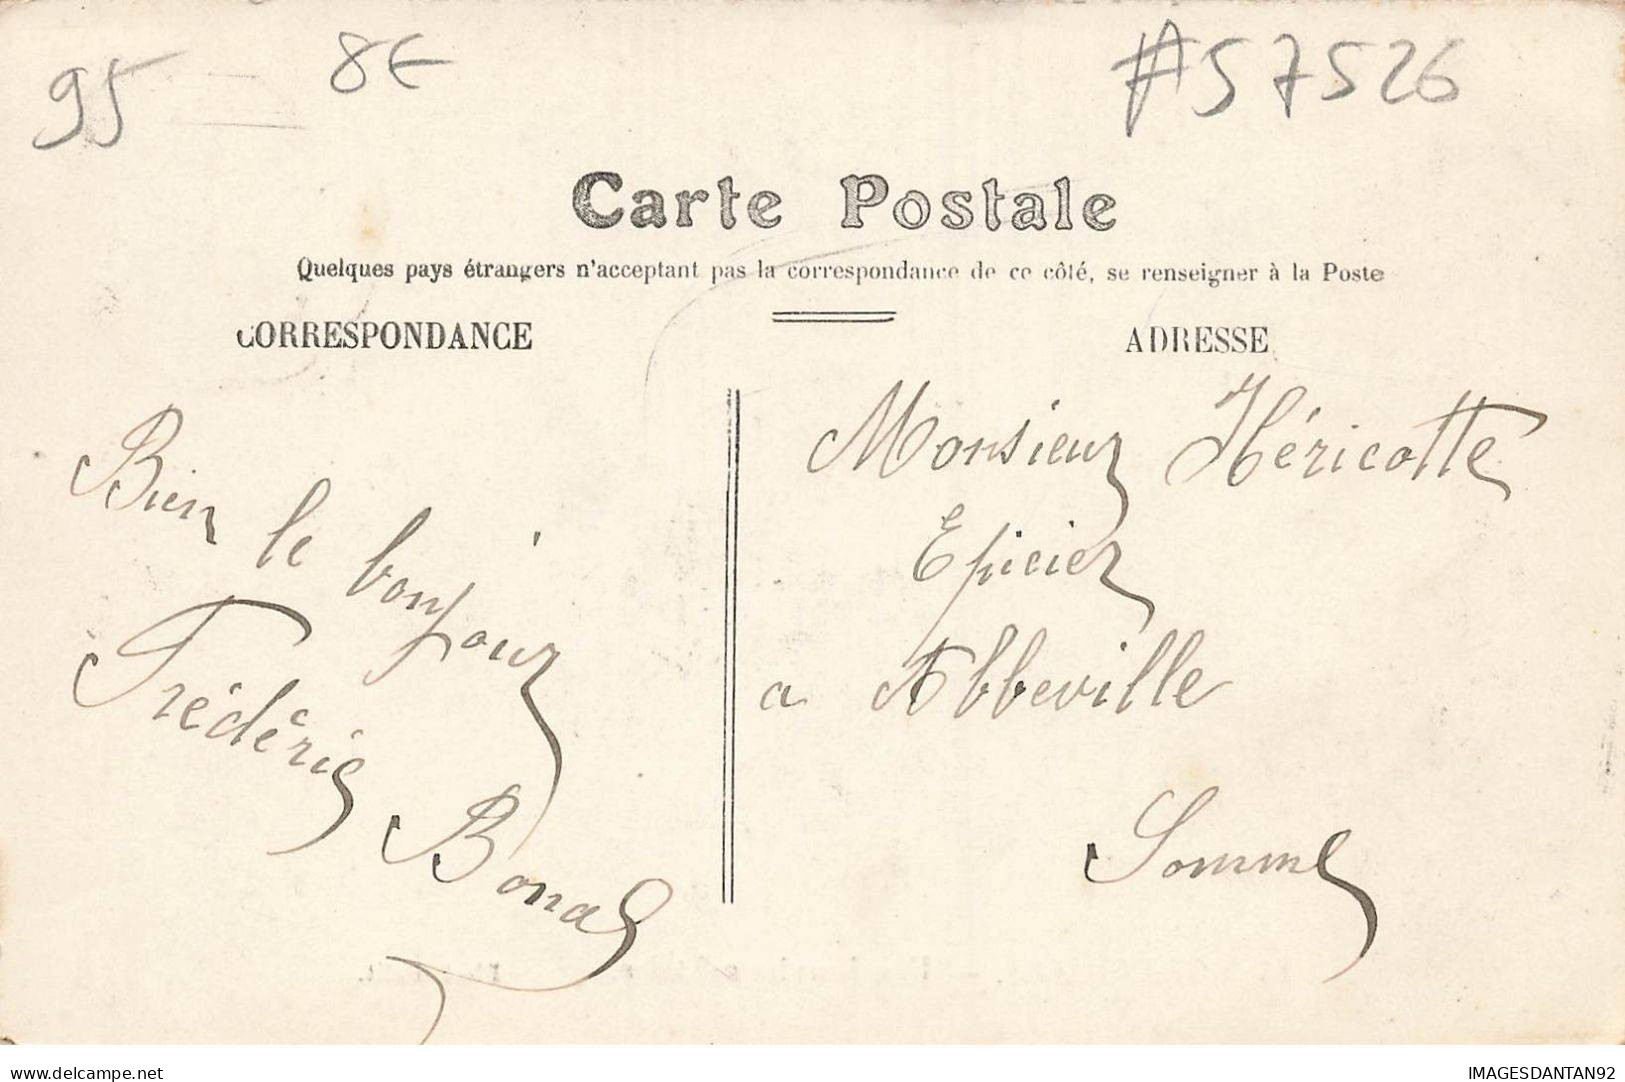 95 8€ #57526
Carte Postale
Quelques pays étrangers n'acceptant pas la correspondance de ce côté, se renseigner à la Poste
CORRESPONDANCE
ADRESSE
Bien le bonjour
Frédéric
Monsieur Héricotte
Epicier
a Abbeville
Somme
delcampe.net
IMAGESDANTAN92